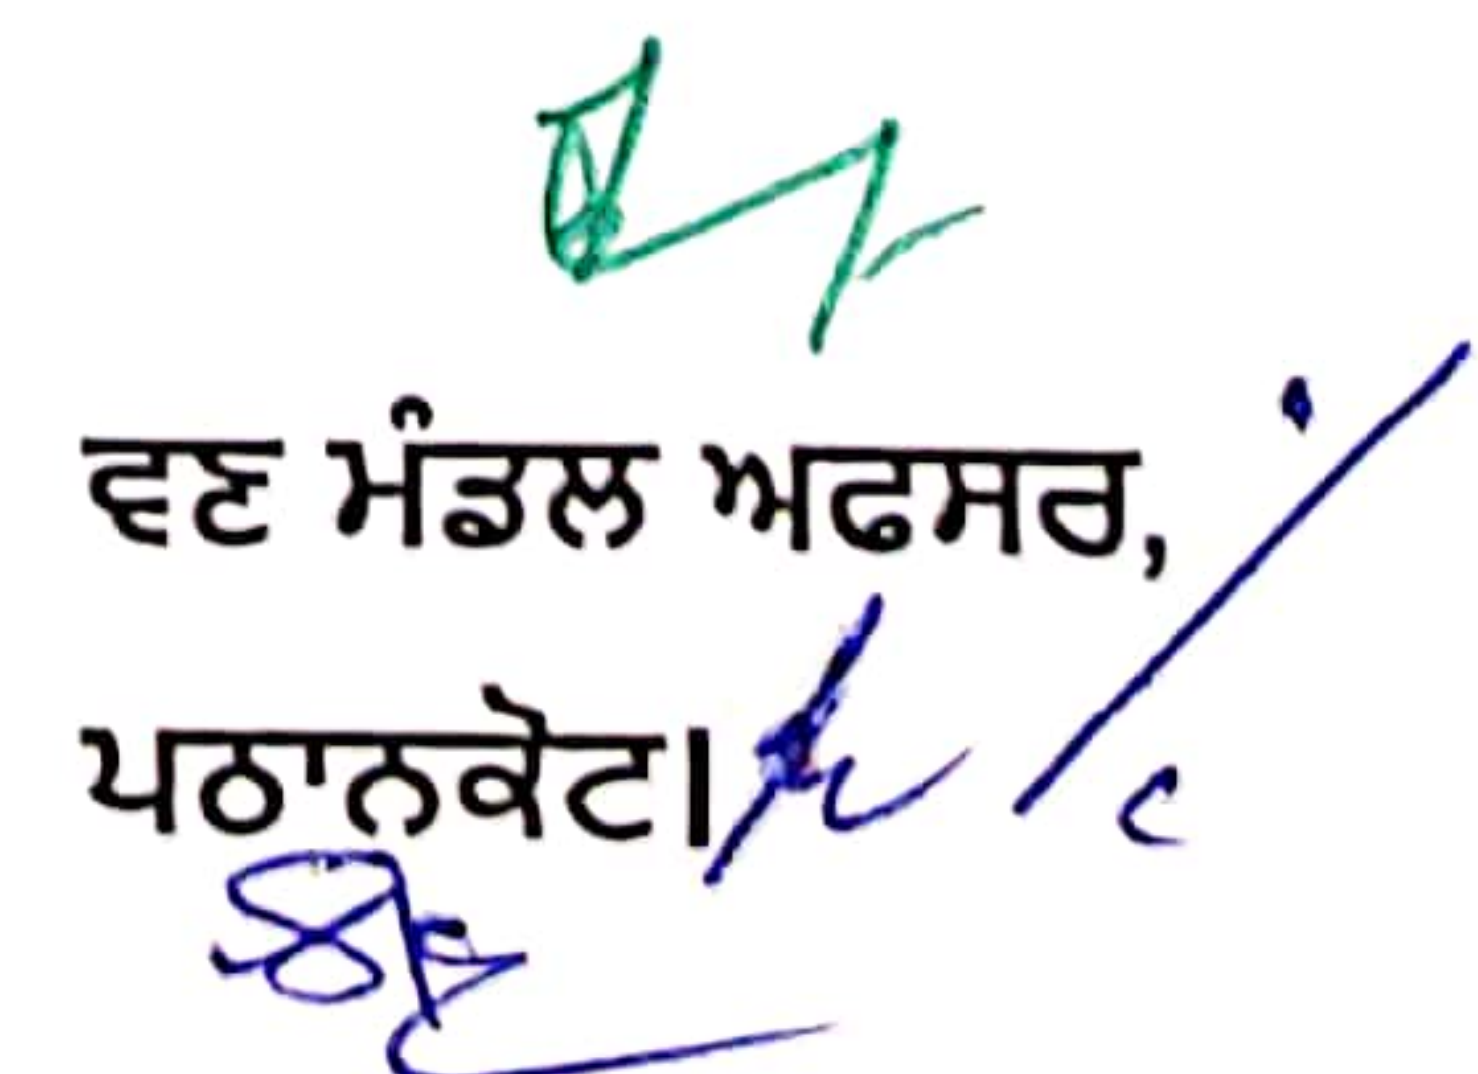 ਵਣ ਮੰਡਲ ਅਫਸਰ,
ਪਠਾਨਕੋਟ।